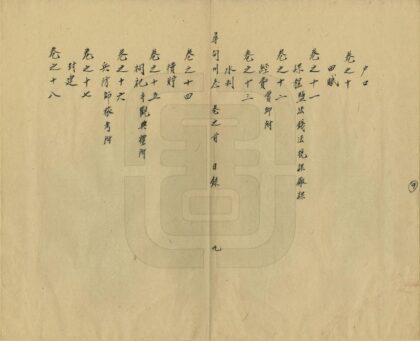 户口
卷之十
田賦
卷之十一
課程鹽法錢法稅課廠課
卷之十二
經費賞卹附
卷之十三
水利
尋甸州志 卷之首 目錄 九
卷之十四
積貯
卷之十五
祠祀寺觀典禮附
卷之十六
兵防師旅考附
卷之十七
封建
卷之十八
9